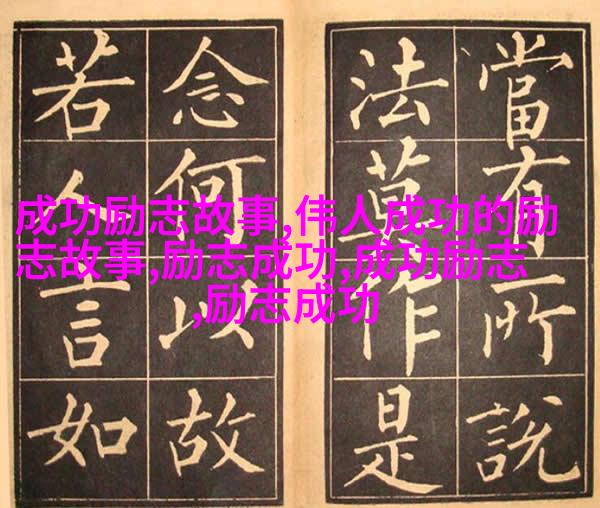 當有所說
法莫作是
念何以故
若人言如
成功励志故事,伟人成功的励
志故事,励志成功,成功励志
,励志成功